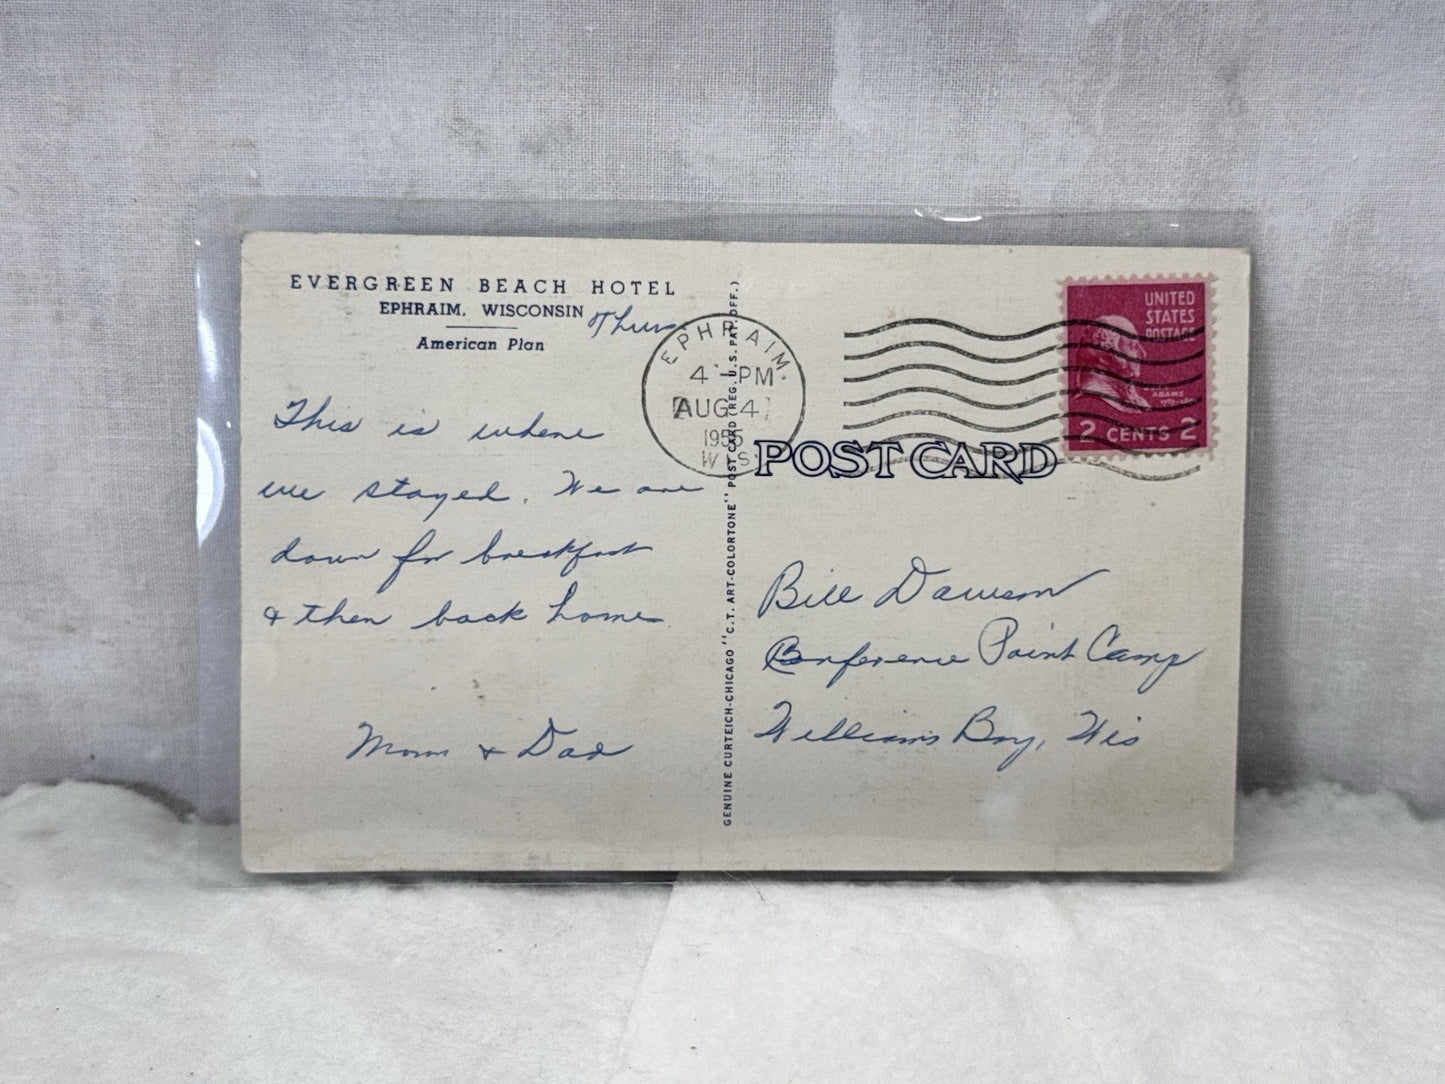 EVERGREEN BEACH HOTEL
EPHRAIM, WISCONSIN
American Plan
Thurs
This is where
we stayed. We are
down for breakfast
& then back home
Mom & Dad
GENUINE CURTEICH-CHICAGO "C.T. ART-COLORTONE" POST CARD (REG. U.S. PAT. OFF.)
EPHRAIM.
4 -PM
AUG 4
1955
WIS
POST CARD
UNITED
STATES
POSTAGE
JOHN
ADAMS
2 CENTS 2
Bill Dawson
Conference Point Camp
Williams Bay, Wis